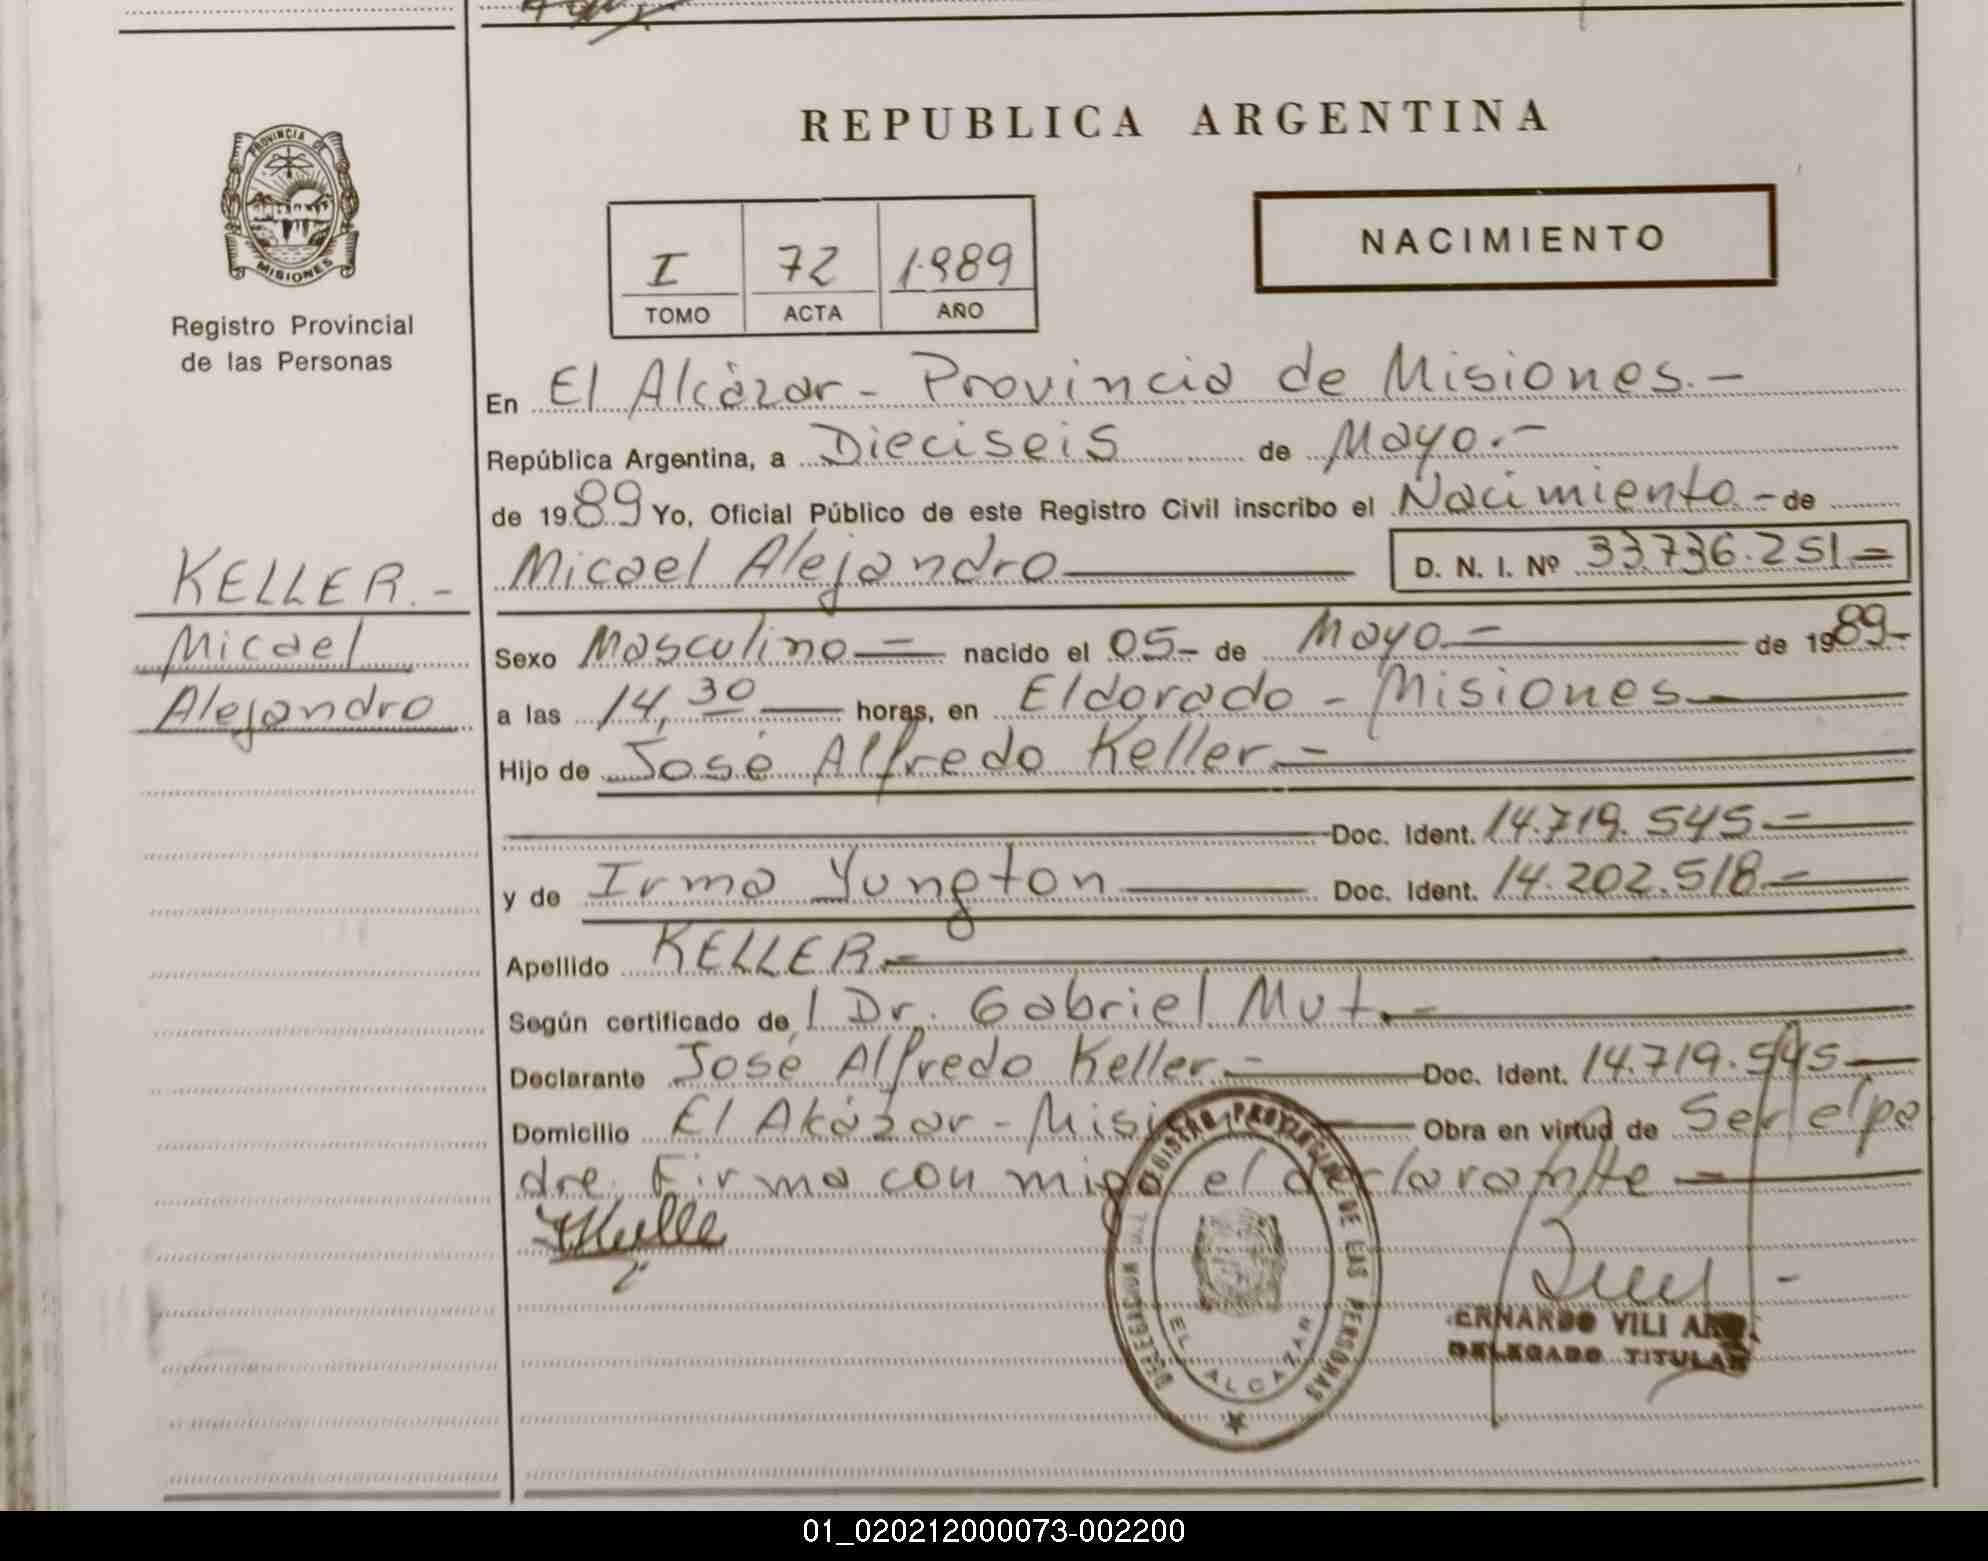 PROVINCIA DE
MISIONES
Registro Provincial
de las Personas
KELLER.-
Micael
Alejandro
REPUBLICA ARGENTINA
I 72 1.989
TOMO ACTA AÑO
NACIMIENTO
En El Alcàzar - Provincia de Misiones.-
República Argentina, a Dieciseis de Mayo.-
de 1989 Yo, Oficial Público de este Registro Civil inscribo el Nacimiento.- de
Micael Alejandro D. N. I. Nº 33.736.251.=
Sexo Masculino= nacido el 05- de Mayo.- de 1989.-
a las 14,30 horas, en Eldorado - Misiones.-
Hijo de José Alfredo Keller.-
Doc. Ident. 14.719.545.-
y de Irma Yungton Doc. Ident. 14.202.518.-
Apellido KELLER.-
Según certificado de l Dr. Gabriel Mut.-
Declarante José Alfredo Keller.- Doc. Ident. 14.719.545.-
Domicilio El Alcázar - Misi Obra en virtud de Ser el pa
dre. Firma con migo el declarante.-
REGISTRO PROVINCIAL DE LAS PERSONAS
DELEGACION
EL ALCAZAR
ERNARDO VILI
DELEGADO TITULAR
01_020212000073-002200